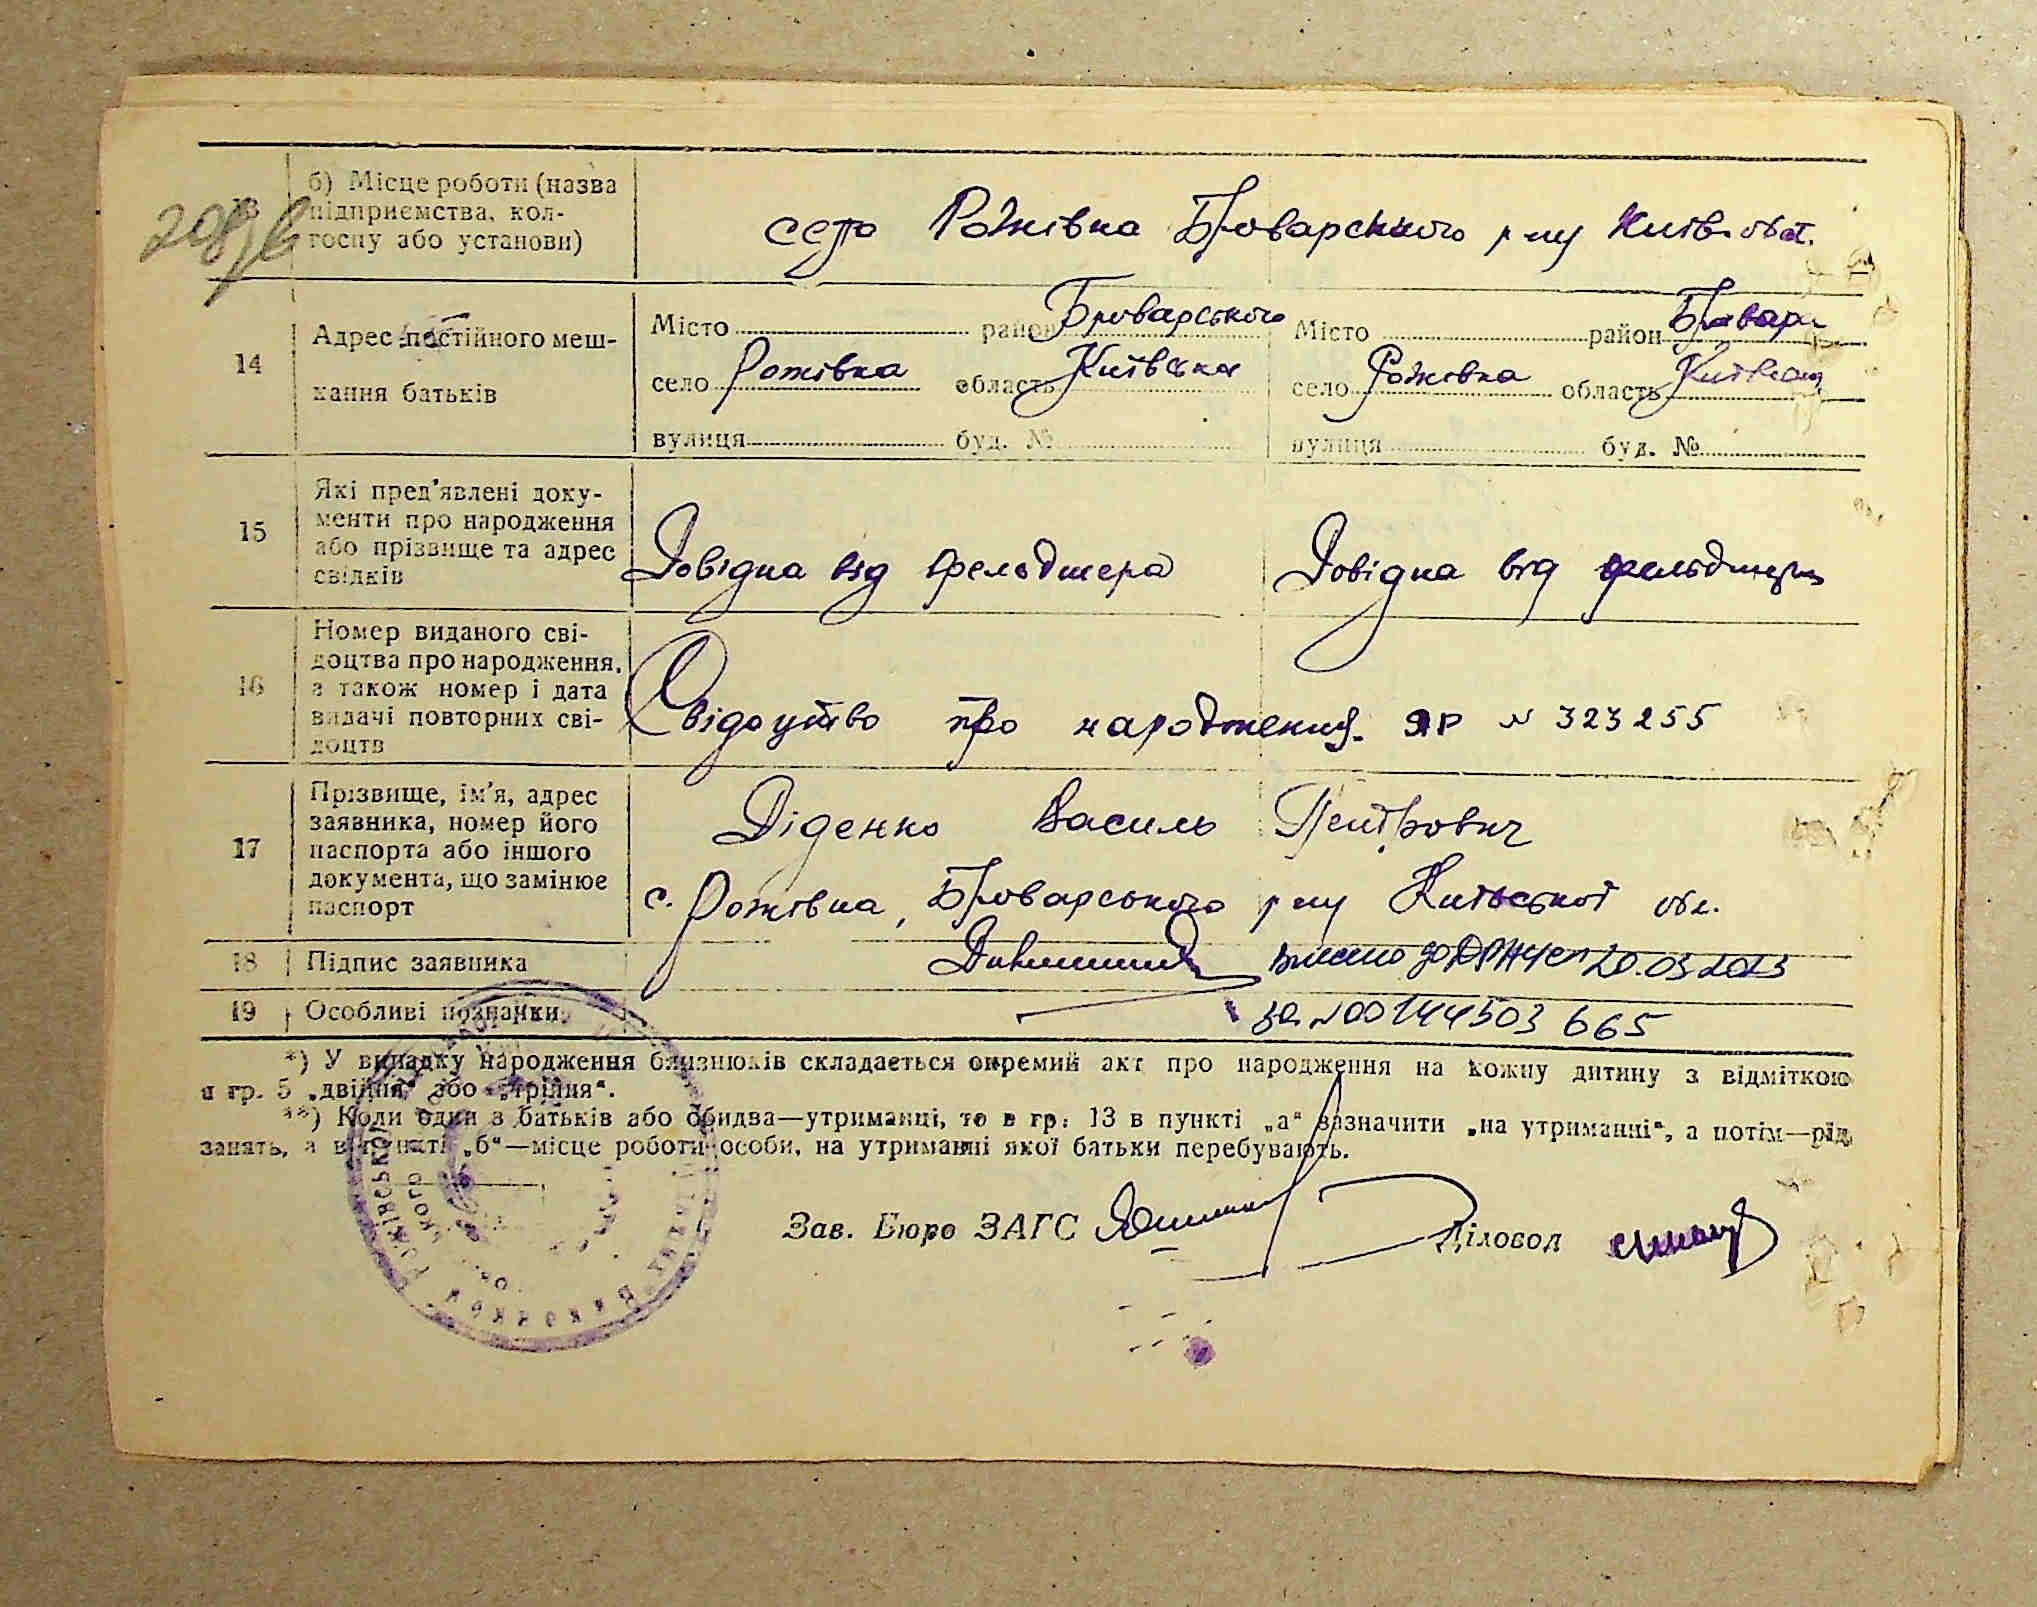 б) Місце роботи (назва
підприємства, кол-
госпу або установи)
село Рожівка Броварського р-ну Київ. обл.
14
Адрес постійного меш-
кання батьків
Місто район Броварського
село Рожівка область Київська
вулиця буд. №
Місто район Бровар
село Рожівка область
вулиця буд. №
15
Які пред'явлені доку-
менти про народження
або прізвище та адрес
свідків
Довідка від фельдшера
Довідка від фельдшера
16
Номер виданого сві-
доцтва про народження,
а також номер і дата
видачі повторних сві-
доцтв
Свідоцтво про народження ЯР № 323255
17
Прізвище, ім'я, адрес
заявника, номер його
паспорта або іншого
документа, що замінює
паспорт
Діденко Василь Петрович
с. Рожівка, Броварського р-ну Київської обл.
18
Підпис заявника
внесено до 20.03.2023
19
Особливі познайки
за №00144503665
*) У випадку народження близнюків складається окремий акт про народження на кожну дитину з відміткою
в гр. 5 „двійня“ або „трійня“.
**) Коли один з батьків або обидва—утриманці, то в гр. 13 в пункті „а“ зазначити „на утриманні“, а потім—рід
занять, а в пункті „б“—місце роботи особи, на утриманні якої батьки перебувають.
Зав. Бюро ЗАГС
Діловод